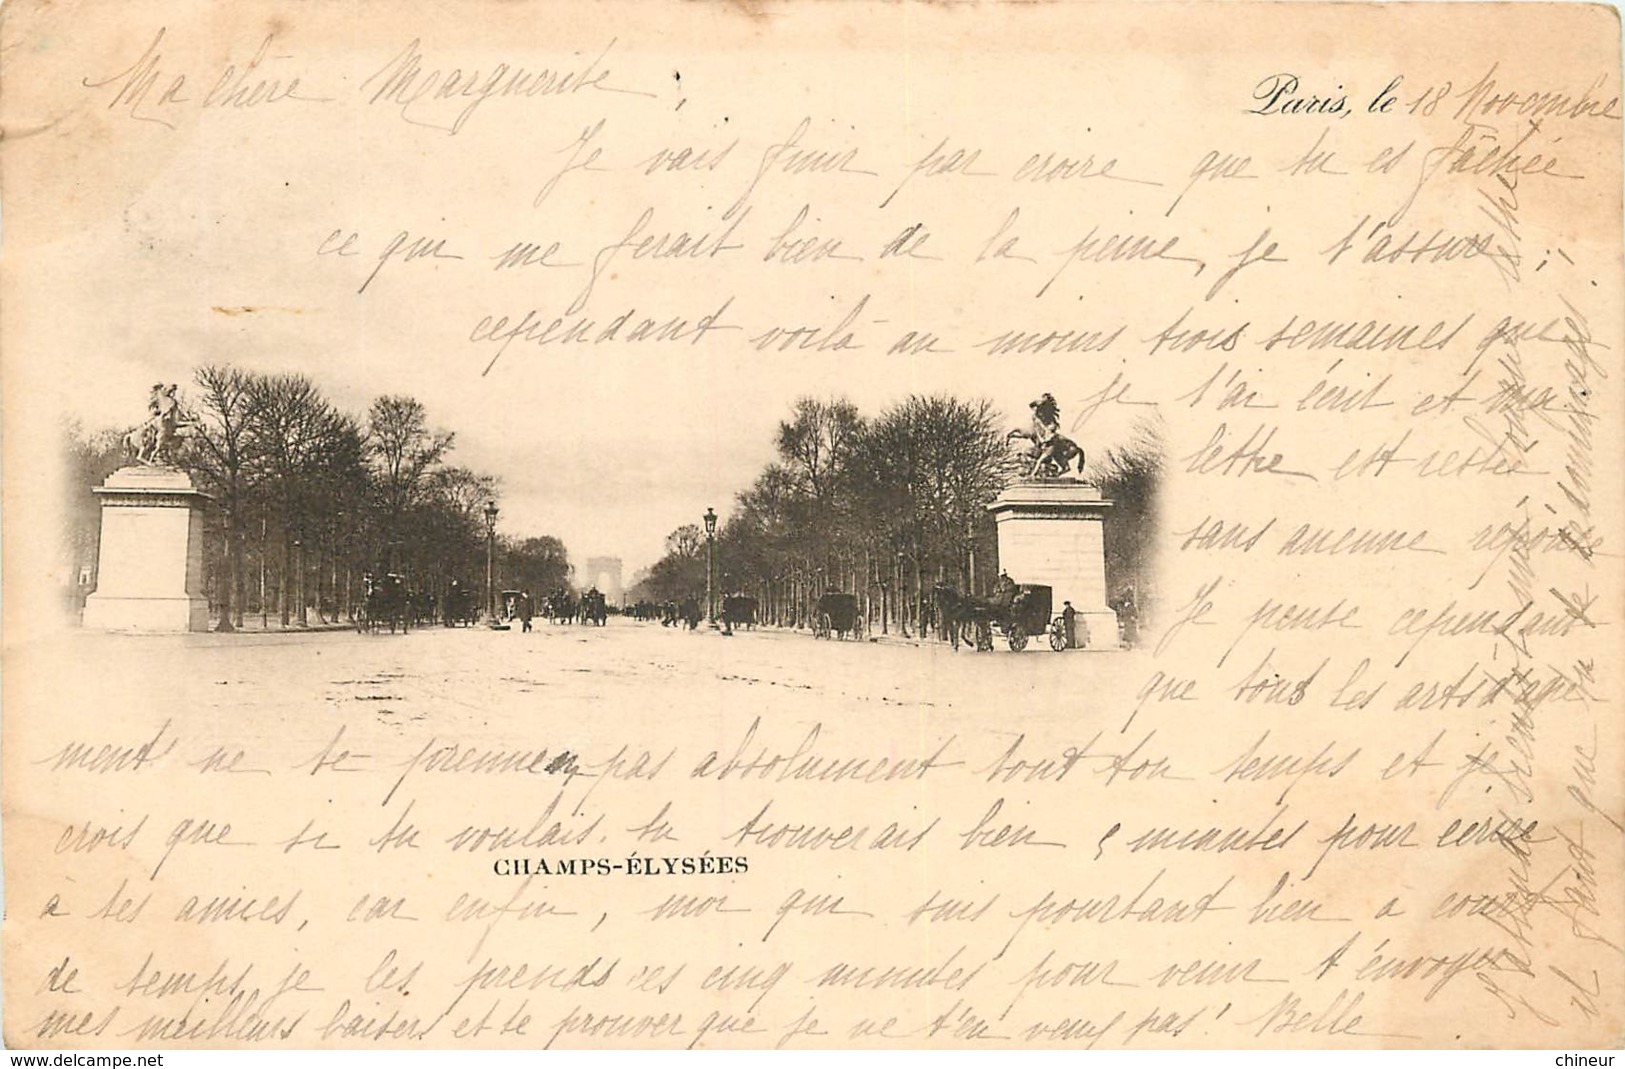 Paris, le 18 Novembre
Ma chère Marguerite,
Je vais finir par croire que tu es fâchée
ce qui me ferait bien de la peine, je t'assure ;
cependant voilà au moins trois semaines que
je t'ai écrit et ma
lettre est restée
sans aucune réponse
Je pense cependant
que tous les arts d'agré
ment ne te prennent pas absolument tout ton temps et je
crois que si tu voulais tu trouverais bien 5 minutes pour écrire
CHAMPS-ÉLYSÉES
à tes amies, car enfin, moi qui suis pourtant bien à court
de temps, je les prends ces cinq minutes pour venir t'envoyer
mes meilleurs baisers et te prouver que je ne t'en veux pas ! Belle
J'attends bientôt une longue lettre
il faut que tu me dédommages !
chineur
www.delcampe.net